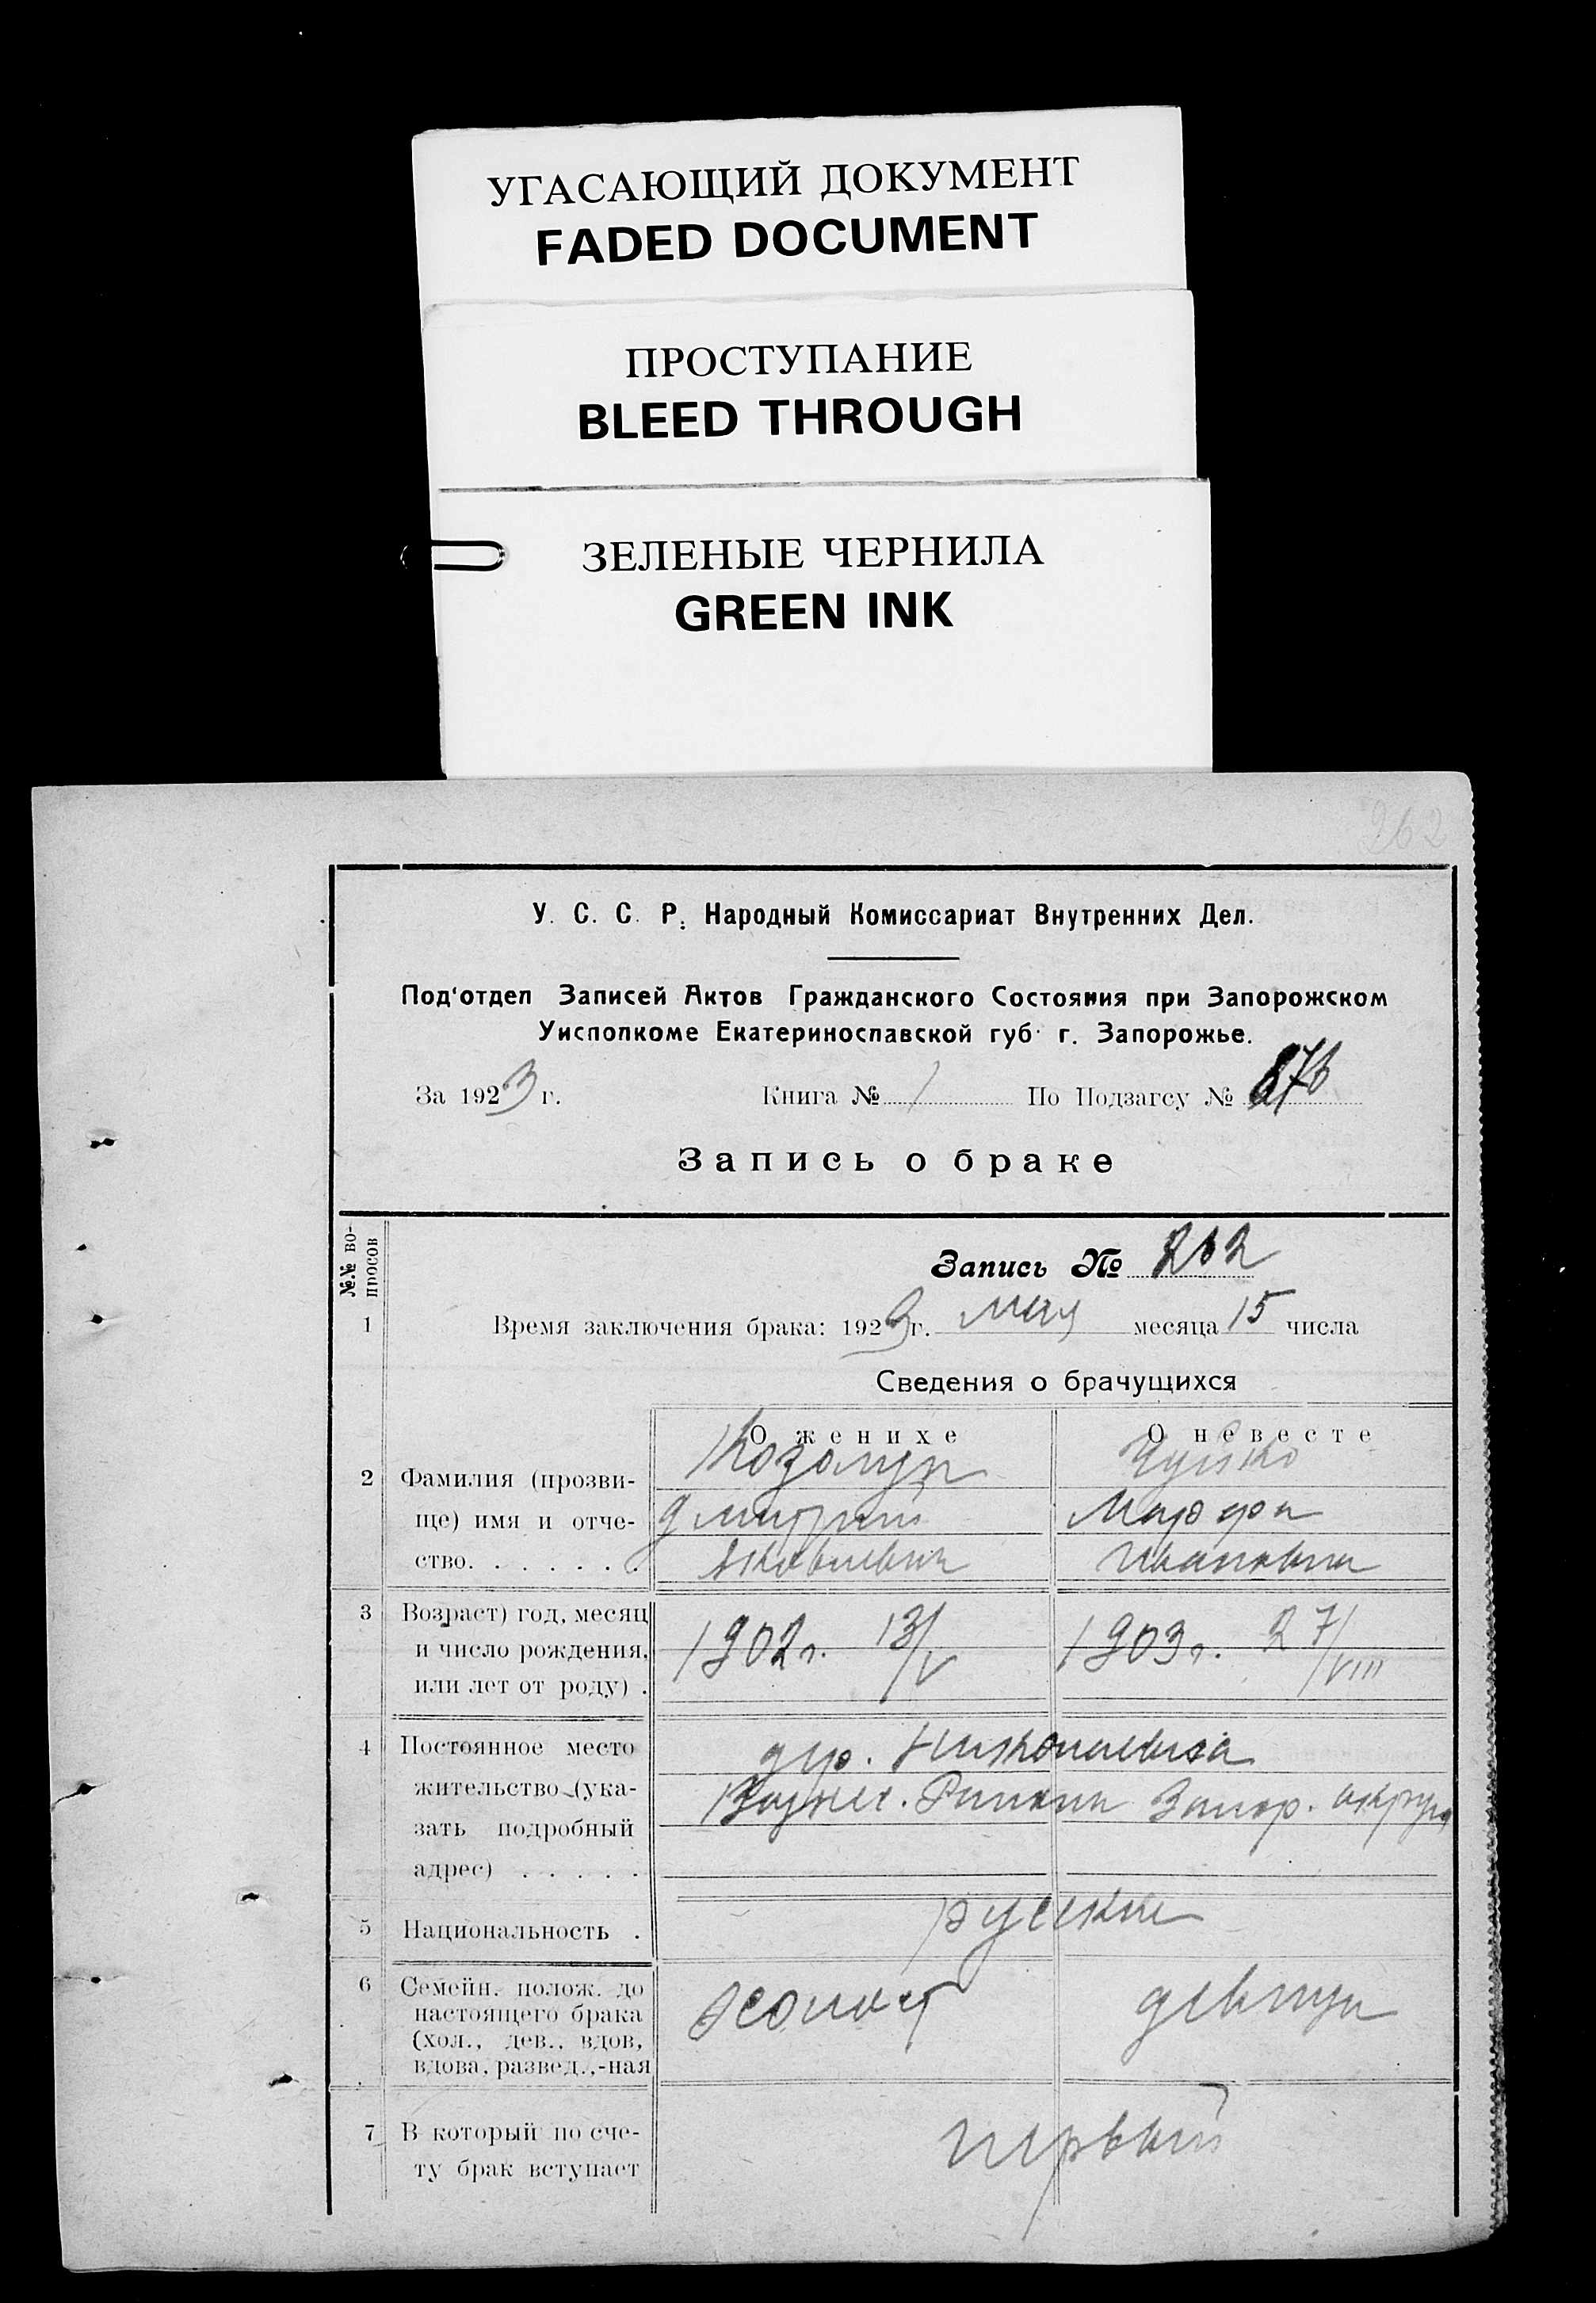 УГАСАЮЩИЙ ДОКУМЕНТ
FADED DOCUMENT
ПРОСТУПАНИЕ
BLEED THROUGH
ЗЕЛЕНЫЕ ЧЕРНИЛА
GREEN INK
262
У. С. С. Р. Народный Комиссариат Внутренних Дел.
Под'отдел Записей Актов Гражданского Состояния при Запорожском
Уисполкоме Екатеринославской губ. г. Запорожье.
За 1923 г. Книга № 1 По Подзагсу №
Запись о браке
№.№ во-
просов
Запись № 262
1 Время заключения брака: 1923 г. мая месяца 15 числа
Сведения о брачущихся
О женихе О невесте
2 Фамилия (прозви-
ще) имя и отче- Дмитрий
ство. . . . . . Яковлевич Ивановна
3 Возраст) год, месяц
и число рождения, 1902 г. 13/V 1903 г. 27/VIII
или лет от роду) .
4 Постоянное место дер.
жительство (ука- Запор. округа
зать подробный
адрес) . . . . .
5 Национальность . русские
6 Семейн. полож. до
настоящего брака холост девица
(хол., дев., вдов,
вдова, развед.,-ная
7 В который по сче- первый
ту брак вступает